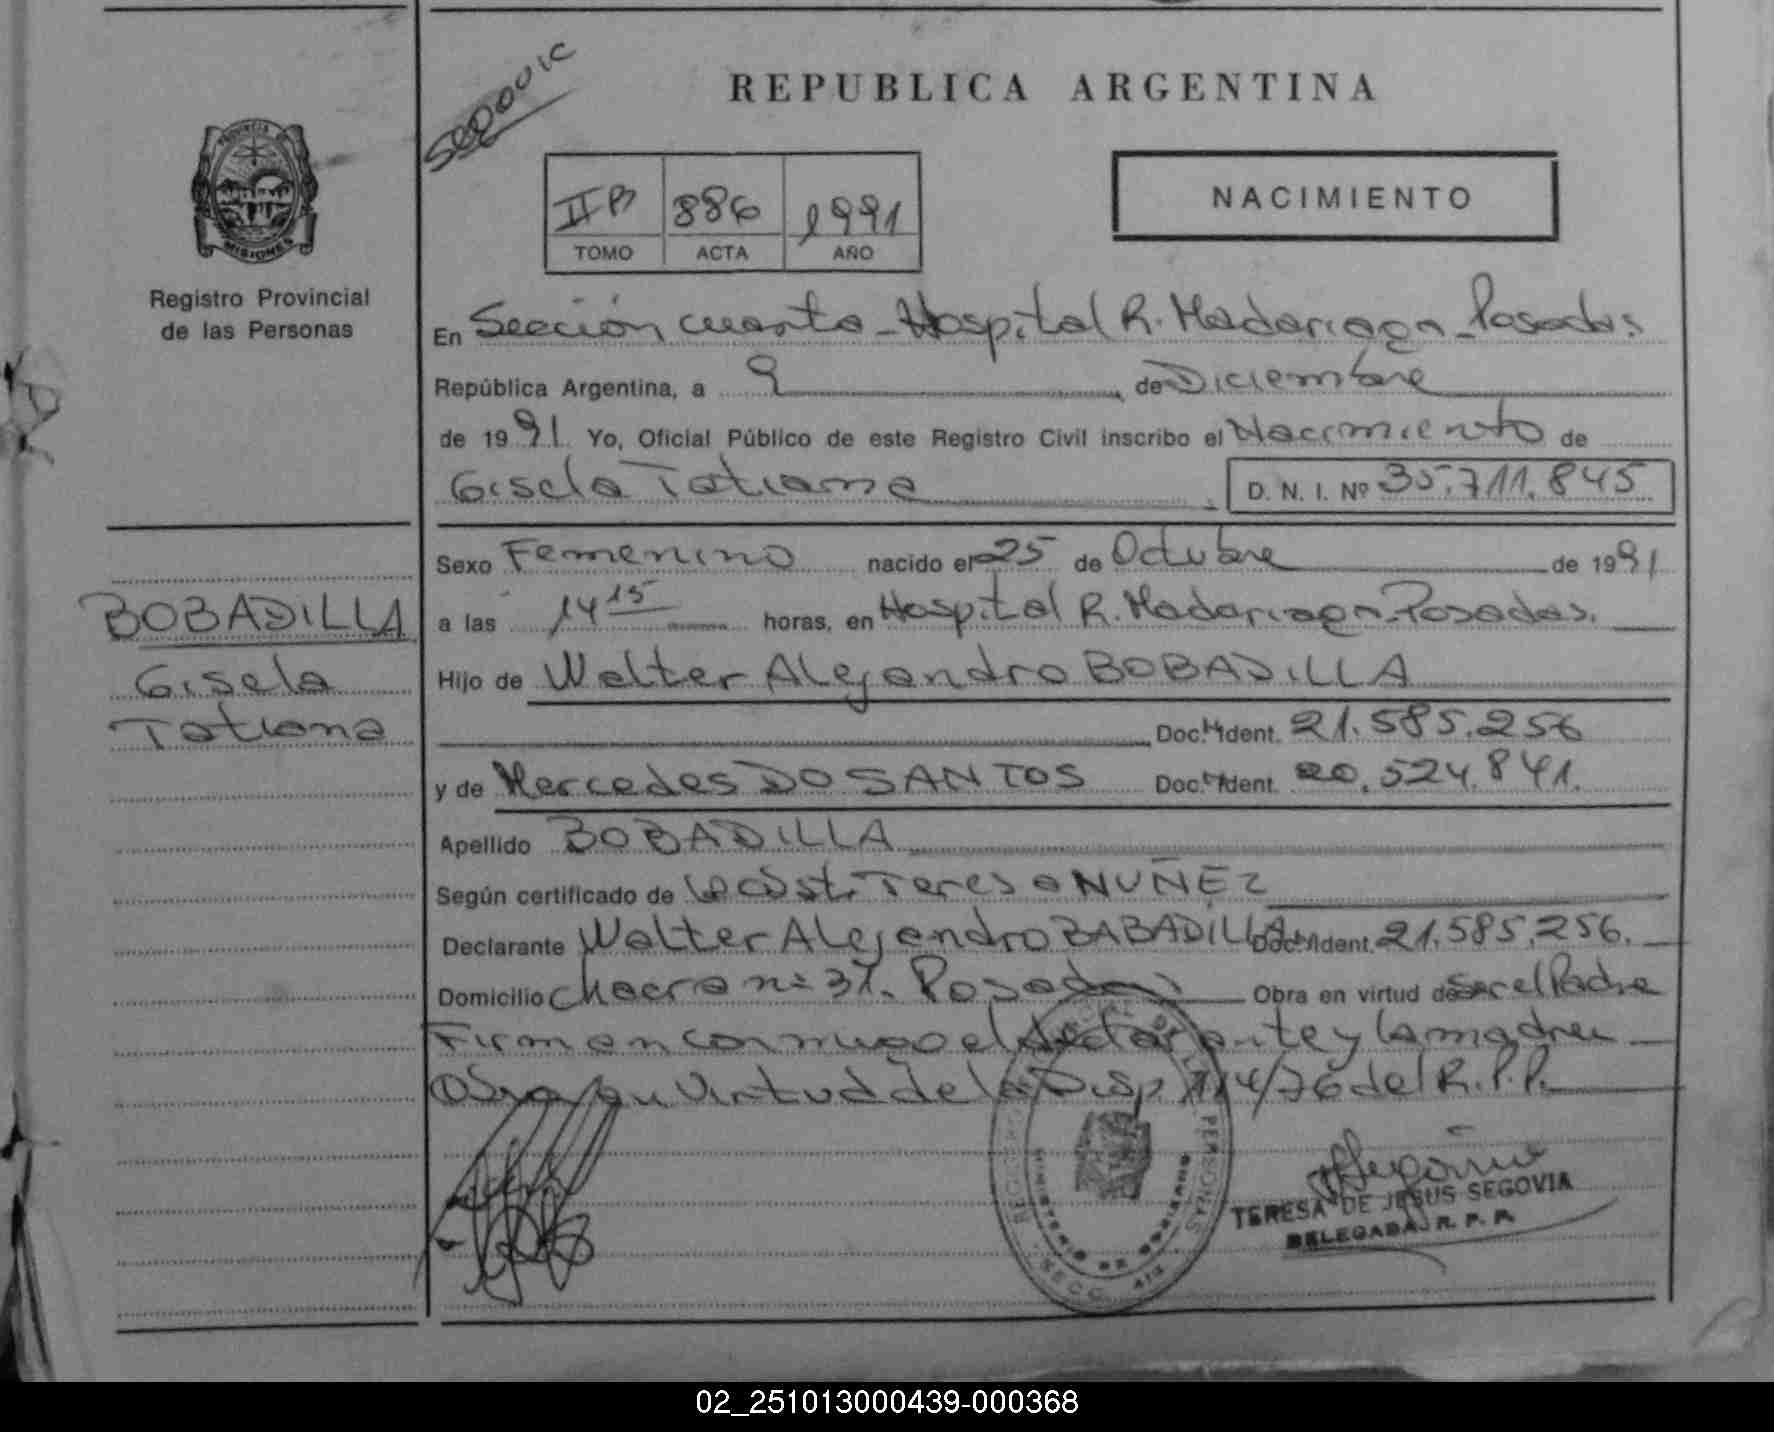 REPUBLICA ARGENTINA
PROVINCIA DE
MISIONES
Registro Provincial
de las Personas
II B 886 1991
TOMO ACTA AÑO
NACIMIENTO
En Sección cuarta - Hospital R. Madariaga - Posadas.
República Argentina, a 9 de Diciembre
de 1991 Yo, Oficial Público de este Registro Civil inscribo el Nacimiento de
Gisela Tatiana D. N. I. Nº 35.711.845
BOBADILLA
Gisela
Tatiana
Sexo Femenino nacido el 25 de Octubre de 1991
a las 14 15 horas, en Hospital R. Madariaga - Posadas.
Hijo de Walter Alejandro BOBADILLA
Doc. Ident. 21.585.256
y de Mercedes DO SANTOS Doc. Ident. 20.524.841.
Apellido BOBADILLA
Según certificado de Obst. Teresa NUÑEZ
Declarante Walter Alejandro BABADILLA Doc. Ident. 21.585.256.
Domicilio Chacra nº 31. Posadas Obra en virtud de Ser el Padre
Firman conmigo el declarante y la madre
Obra en Virtud de la Disp 114/76 del R.P.P.
PERSONAS
MINISTERIO DE GOBIERNO
SECC. 4ta
TERESA DE JESUS SEGOVIA
DELEGADA R. P. P.
02_251013000439-000368